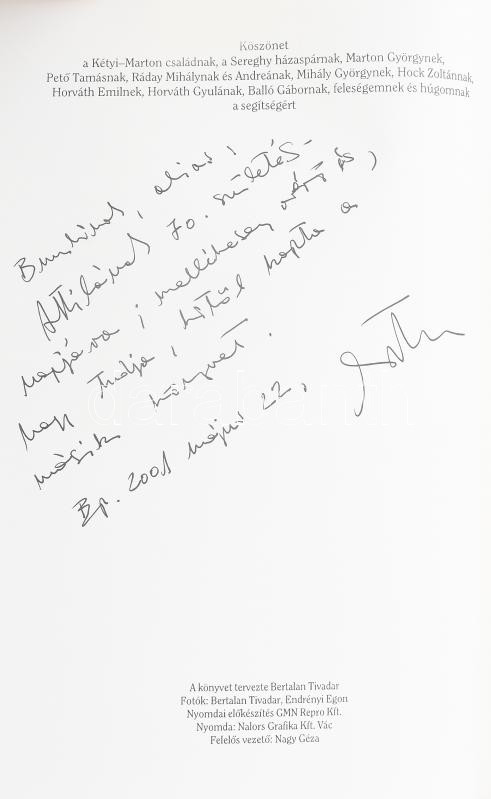 Köszönet
a Kétyi–Marton családnak, a Sereghy házaspárnak, Marton Györgynek,
Pető Tamásnak, Ráday Mihálynak és Andreának, Mihály Györgynek, Hock Zoltánnak,
Horváth Emilnek, Horváth Gyulának, Balló Gábornak, feleségemnek és húgomnak
a segítségért
alias!
Attilának 70. születés-
napjára; mellékesen
hogy tudja, kitől kapta a
másik könyvet.
Bp. 2001 május 22,
darabanth
A könyvet tervezte Bertalan Tivadar
Fotók: Bertalan Tivadar, Endrényi Egon
Nyomdai előkészítés GMN Repro Kft.
Nyomda: Nalors Grafika Kft. Vác
Felelős vezető: Nagy Géza